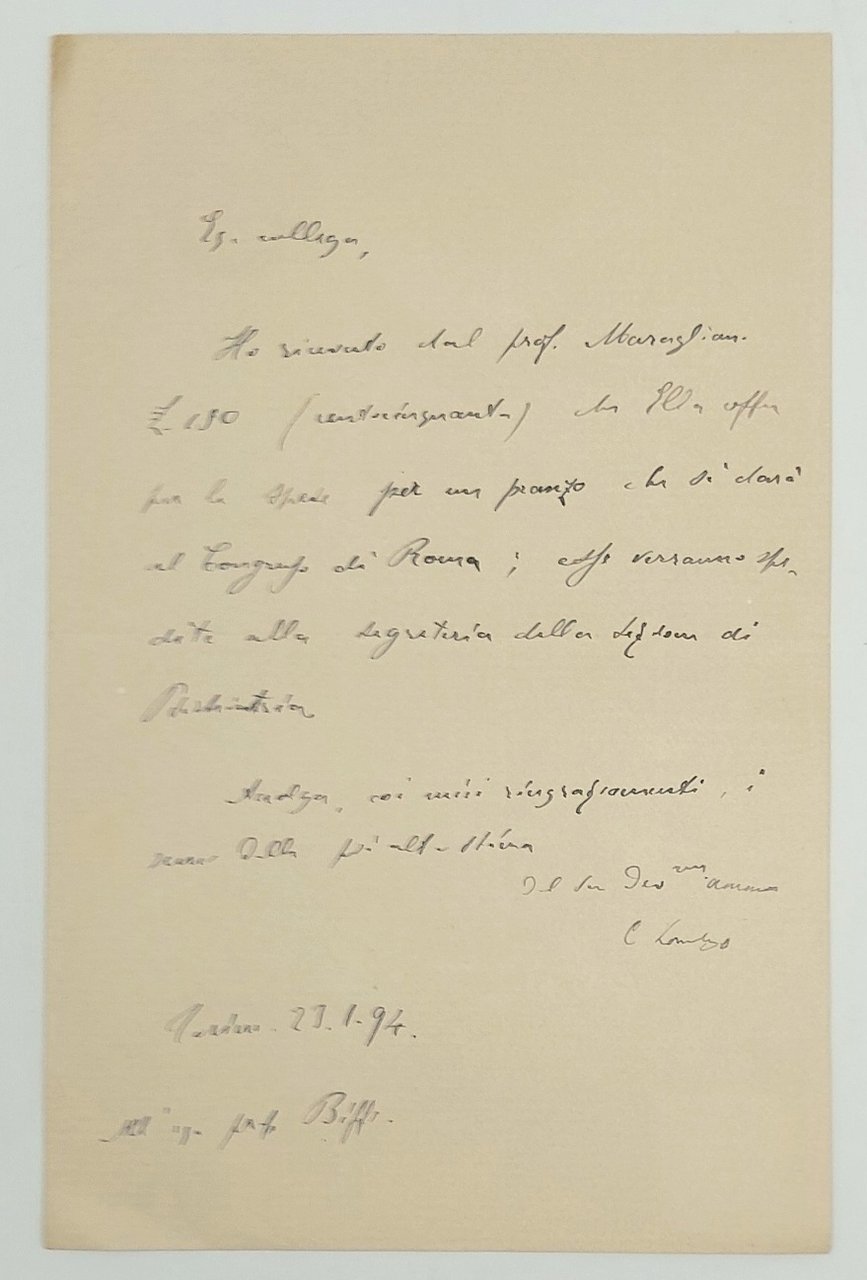 Eg. collega,
Ho ricevuto dal prof. Maragliano
£ 150 (centocinquanta) che Ella offre
per le spese per un pranzo che si darà
al Congresso di Roma ; esse verranno spe-
dite alla segreteria della sezione di
Psichiatria
Accolga, coi miei ringraziamenti, i
sensi della più alta stima
Del suo Dev.mo
C Lombroso
Torino. 23.1.94.
All' eg. prof. Biffi.